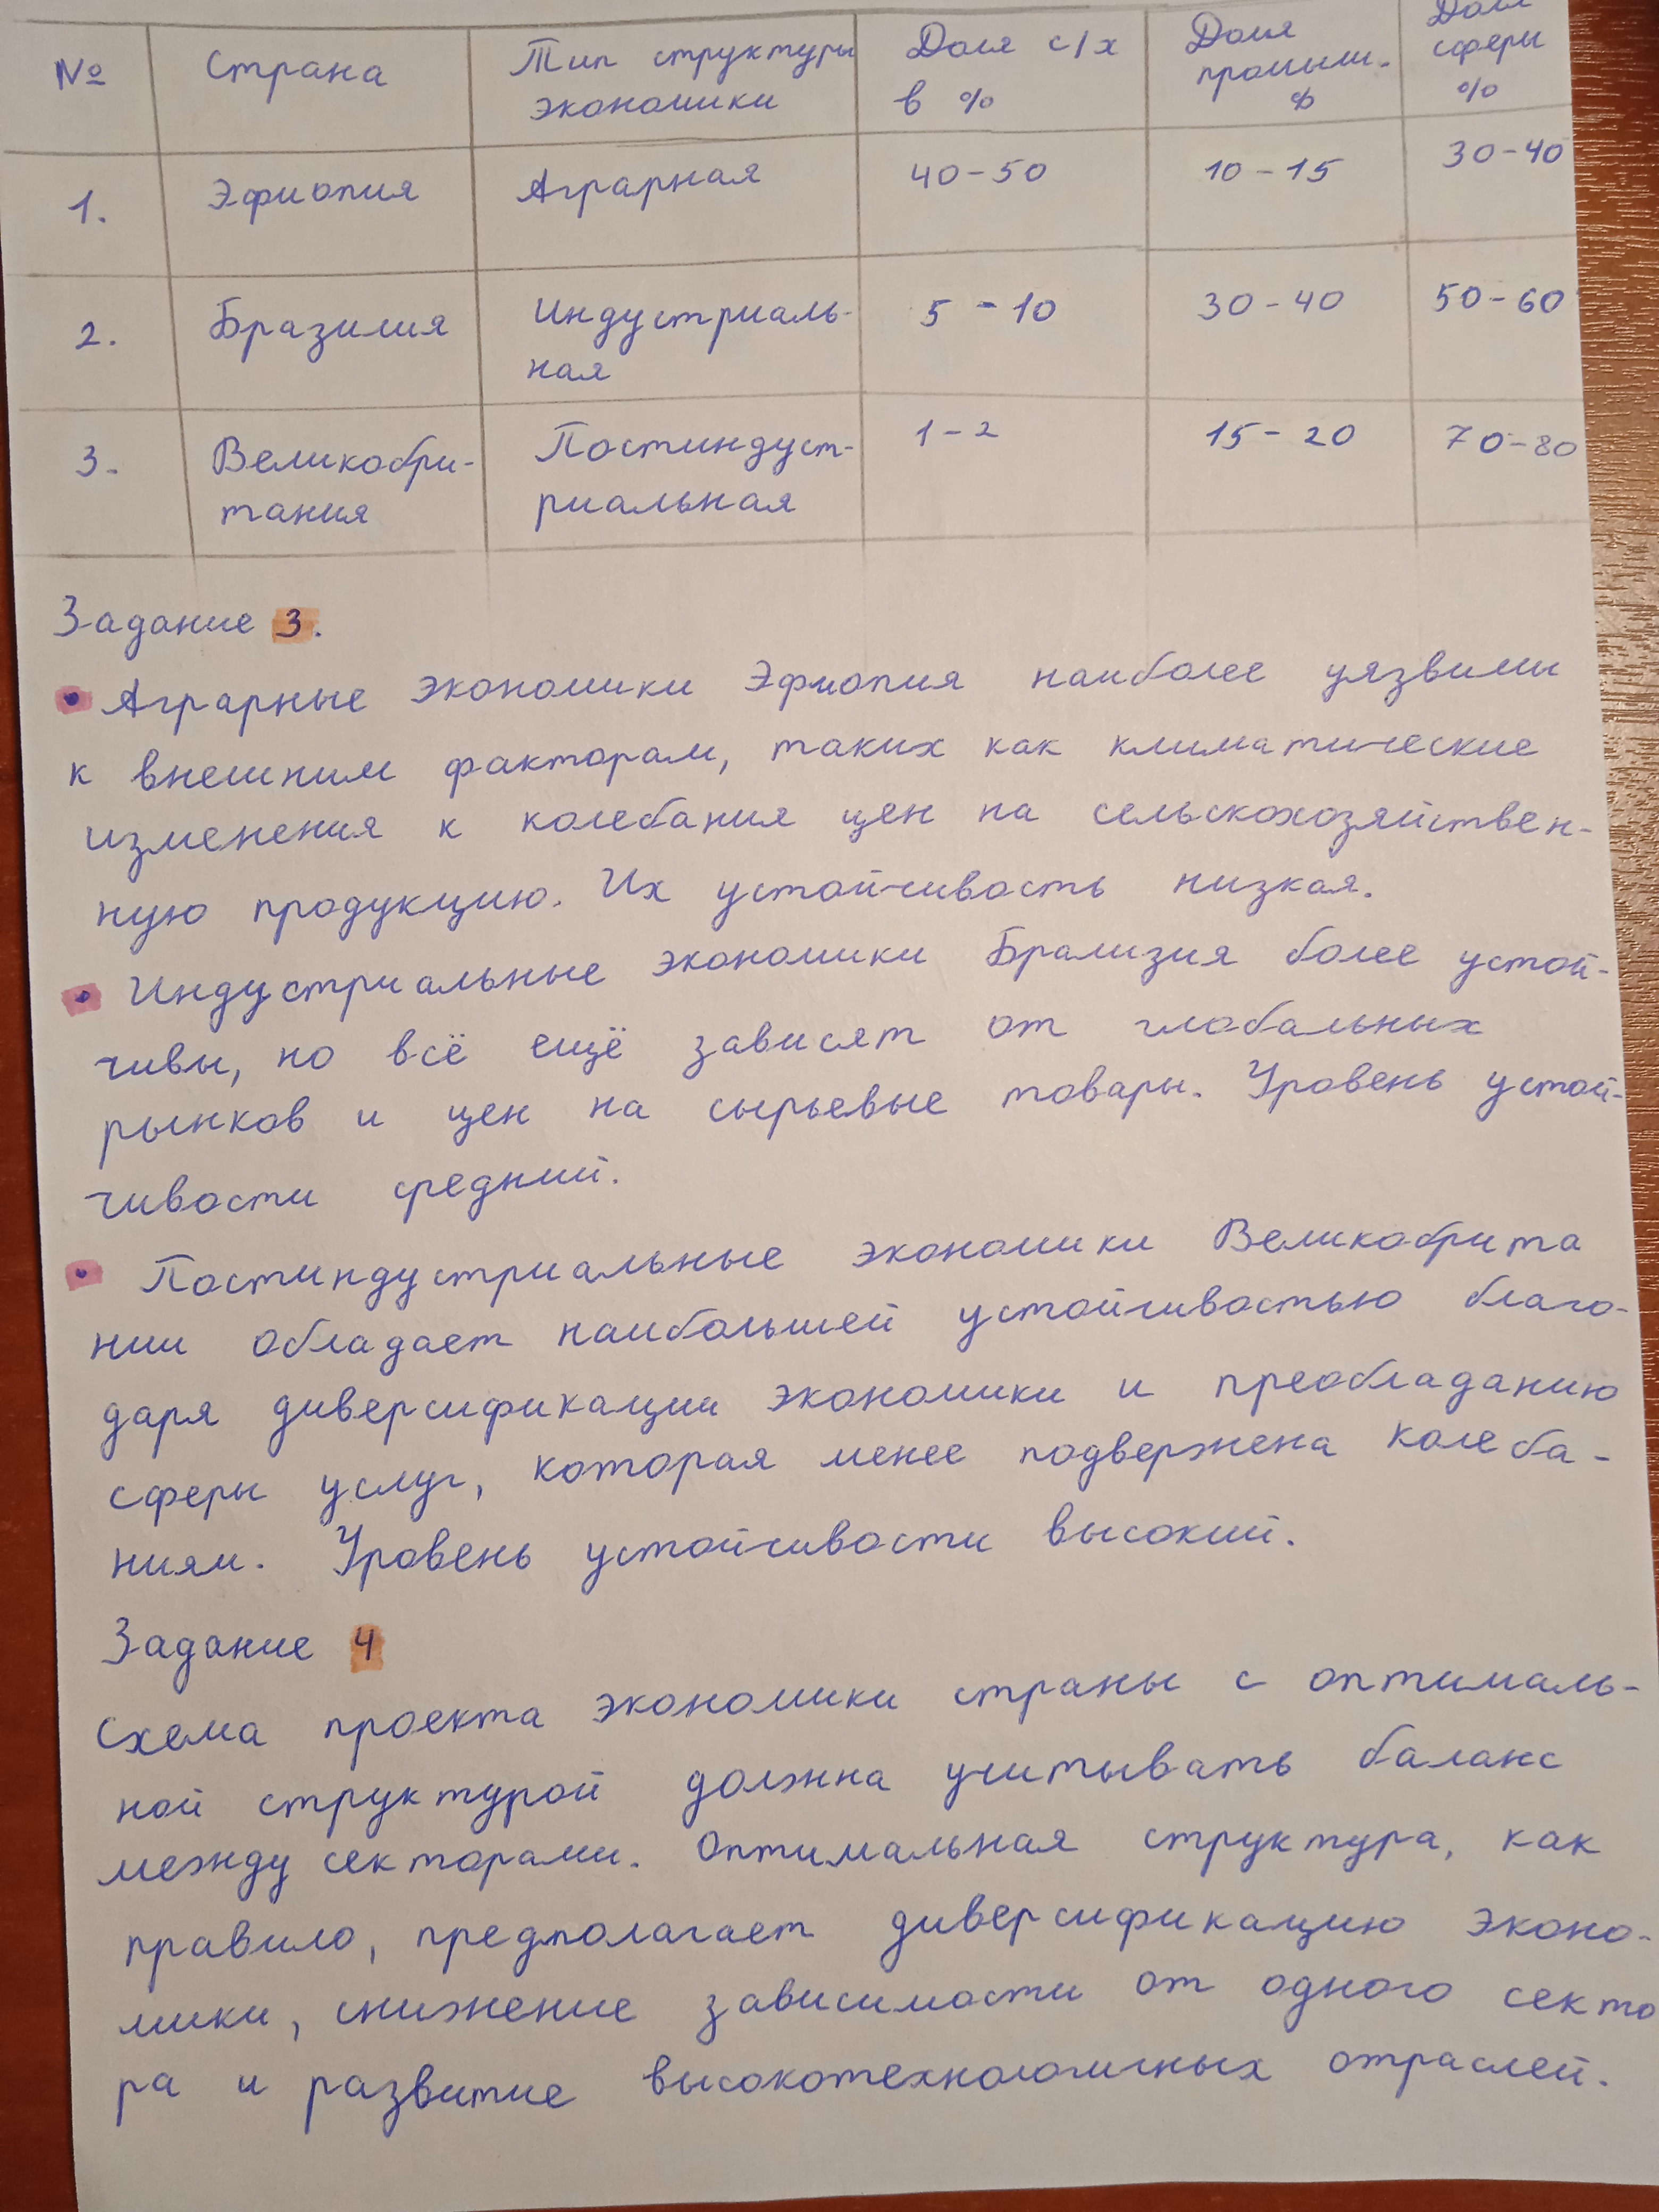 № Страна Тип структуры экономики Доля с/х в % Доля промыш. % Доля сферы %
1. Эфиопия Аграрная 40-50 10-15 30-40
2. Бразилия Индустриаль-ная 5-10 30-40 50-60
3. Великобри-тания Постиндуст-риальная 1-2 15-20 70-80
Задание 3.
• Аграрные экономики Эфиопия наиболее уязвимы
к внешним факторам, таких как климатические
изменения к колебания цен на сельскохозяйствен-
ную продукцию. Их устойчивость низкая.
• Индустриальные экономики Брализия более устой-
чивы, но всё ещё зависят от глобальных
рынков и цен на сырьевые товары. Уровень устой-
чивости средний.
• Постиндустриальные экономики Великобрита
нии обладает наибольшей устойчивостью благо-
даря диверсификации экономики и преобладанию
сферы услуг, которая менее подвержена колеба-
ниям. Уровень устойчивости высокий.
Задание 4
Схема проекта экономики страны с оптималь-
ной структурой должна учитывать баланс
между секторами. Оптимальная структура, как
правило, предполагает диверсификацию эконо-
мики, снижение зависимости от одного секто
ра и развитие высокотехнологичных отраслей.